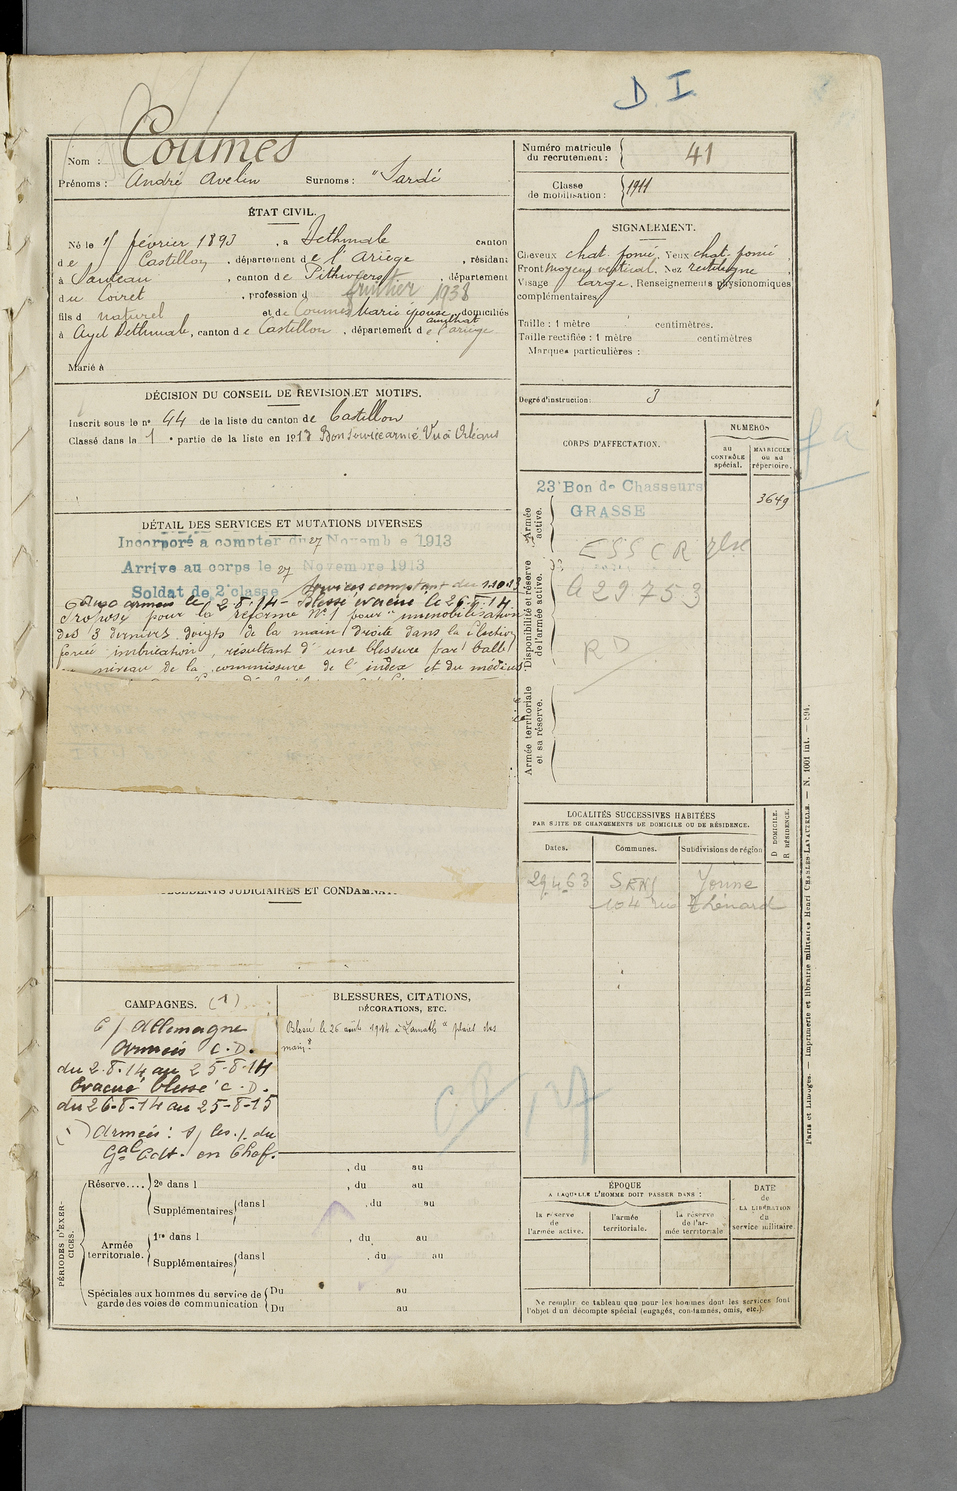 D. I
Nom : Coumes
Prénoms : André Avelin Surnoms : "Sardé
Numéro matricule
du recrutement : 41
Classe
de mobilisation : 1911
ÉTAT CIVIL.
Né le février 1893, à Bethmale canton
de Castillon, département de l'Ariège, résidant
à, canton de Pithiviers, département
du Loiret, profession d février 1938
fils d naturel et de Coumes Marie épouse domiciliés
à Ayet Bethmale, canton de Castillon, département de l'ariège
Marié à
SIGNALEMENT.
Cheveux chat. foncé, Yeux chat. foncé,
Front moyen vertical, Nez rectiligne
Visage large, Renseignements physionomiques
complémentaires
Taille : 1 mètre centimètres.
Taille rectifiée : 1 mètre centimètres
Marques particulières :
Degré d'instruction : 3
DÉCISION DU CONSEIL DE REVISION ET MOTIFS.
Inscrit sous le n° 44 de la liste du canton de Castillon
Classé dans la 1e partie de la liste en 1913 Bon service armé. Vu à Orléans
DÉTAIL DES SERVICES ET MUTATIONS DIVERSES
Incorporé à compter du 27 Novembre 1913
Arrivé au corps le 27 Novembre 1913
Soldat de 2e classe Services comptant du 1.10.13
armées le 2-8-14 - Blessé évacué le 26-8-14.
Proposé pour la réforme N° 1 pour "immobilisation
des 3 derniers doigts de la main droite dans la
résultant d'une blessure par balle
niveau de la commissure de l'index et du médius
CORPS D'AFFECTATION.
NUMÉROS
au
CONTRÔLE
spécial.
MATRICULE
ou au
répertoire.
Armée
active.
23e Bon de Chasseurs
GRASSE
3649
ESSCR
Disponibilité et réserve
de l'armée active.
a 29753
RD
Armée territoriale
et sa réserve.
LOCALITÉS SUCCESSIVES HABITÉES
PAR SUITE DE CHANGEMENTS DE DOMICILE OU DE RÉSIDENCE.
Dates.
Communes.
Subdivisions de région
D DOMICILE.
R RÉSIDENCE.
29 4 63 SENS Yonne
104 rue Thénard
ANTÉCÉDENTS JUDICIAIRES ET CONDAMNAT
CAMPAGNES. (1)
C/ Allemagne
Armées C.D.
du 2-8-14 au 25-8-14
Évacué blessé C.D.
du 26-8-14 au 25-8-15
(1) Armées : S/ les . du
Gal Cdt. en Chef.
BLESSURES, CITATIONS,
DÉCORATIONS, ETC.
Blessé le 26 août 1914 à "plaies des
mains"
PÉRIODES D'EXER-
CICES.
, du au
Réserve.... 2e dans l , du au
Supplémentaires dans l , du au
Armée
territoriale.
1re dans l , du au
Supplémentaires dans l , du au
Spéciales aux hommes du service de
garde des voies de communication
Du au
Du au
ÉPOQUE
A LAQUELLE L'HOMME DOIT PASSER DANS :
la réserve
de
l'armée active.
l'armée
territoriale.
la réserve
de l'ar-
mée territoriale
DATE
de
LA LIBÉRATION
du
service militaire.
Ne remplir ce tableau que pour les hommes dont les services font
l'objet d'un décompte spécial (engagés, condamnés, omis, etc.).
Paris et Limoges. — Imprimerie et librairie militaires Henri CHARLES-LAVAUZELLE. — N. 1001 int. — 894.